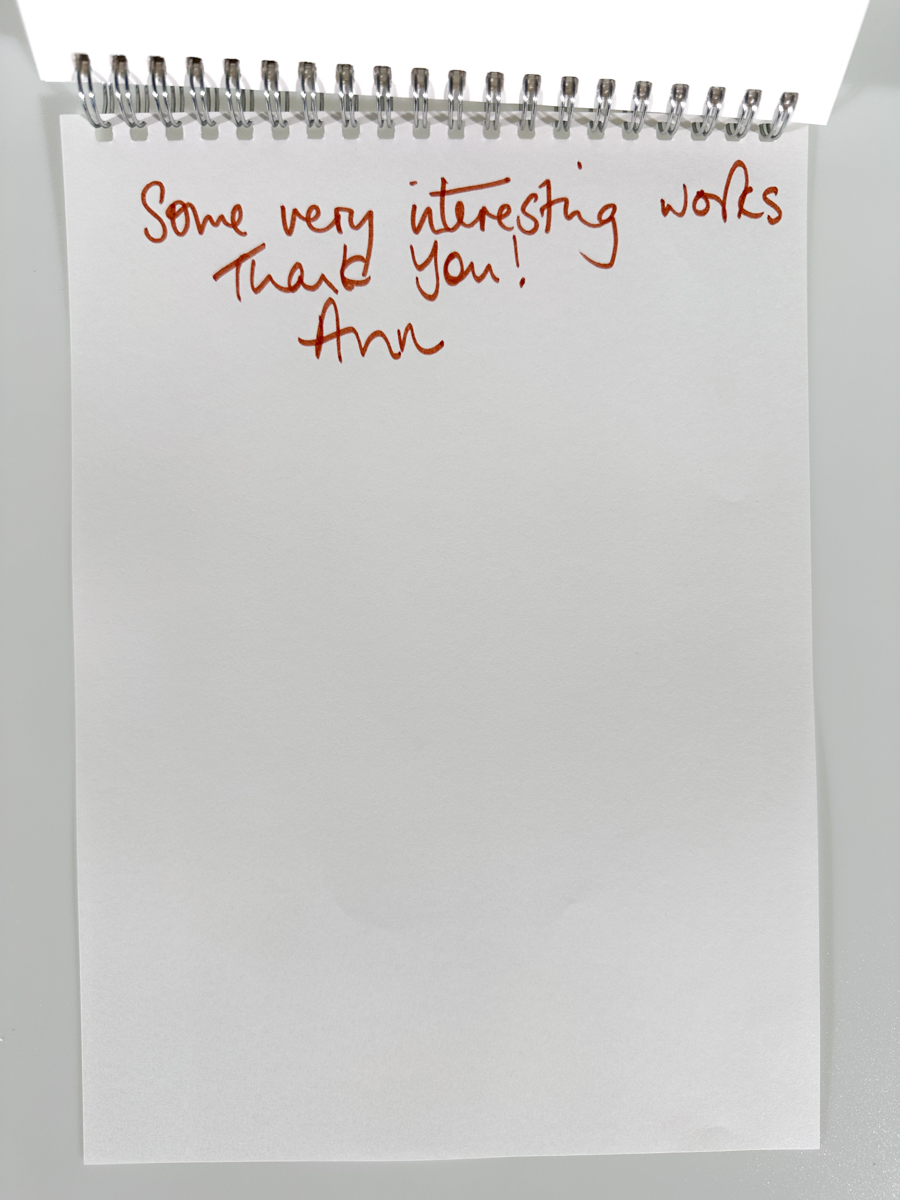 Some very interesting works
Thank You!
Ann